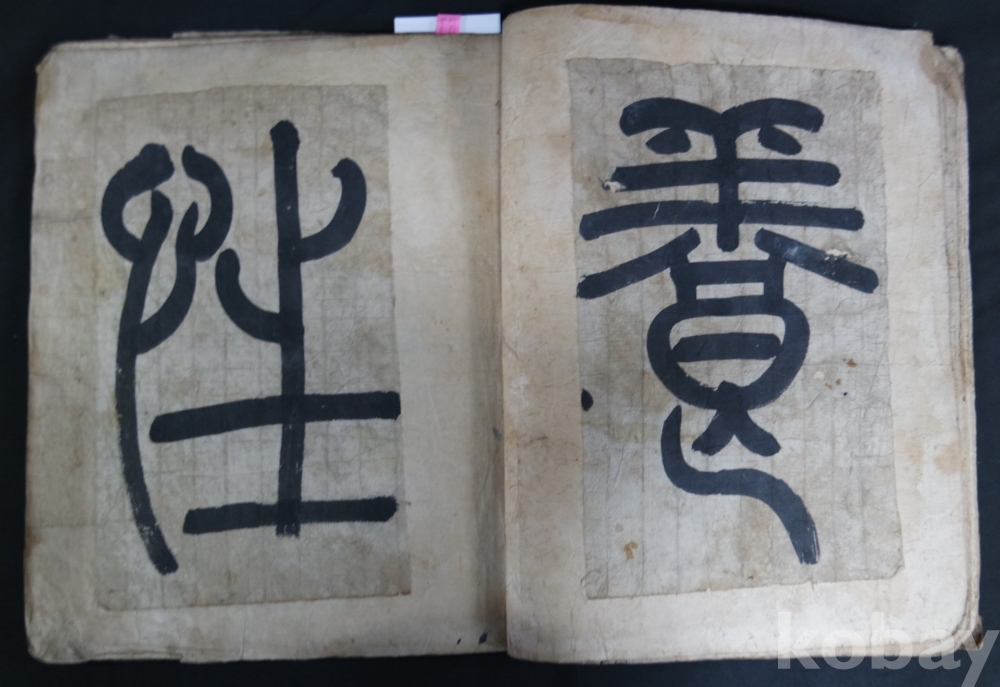 養
性
kobay